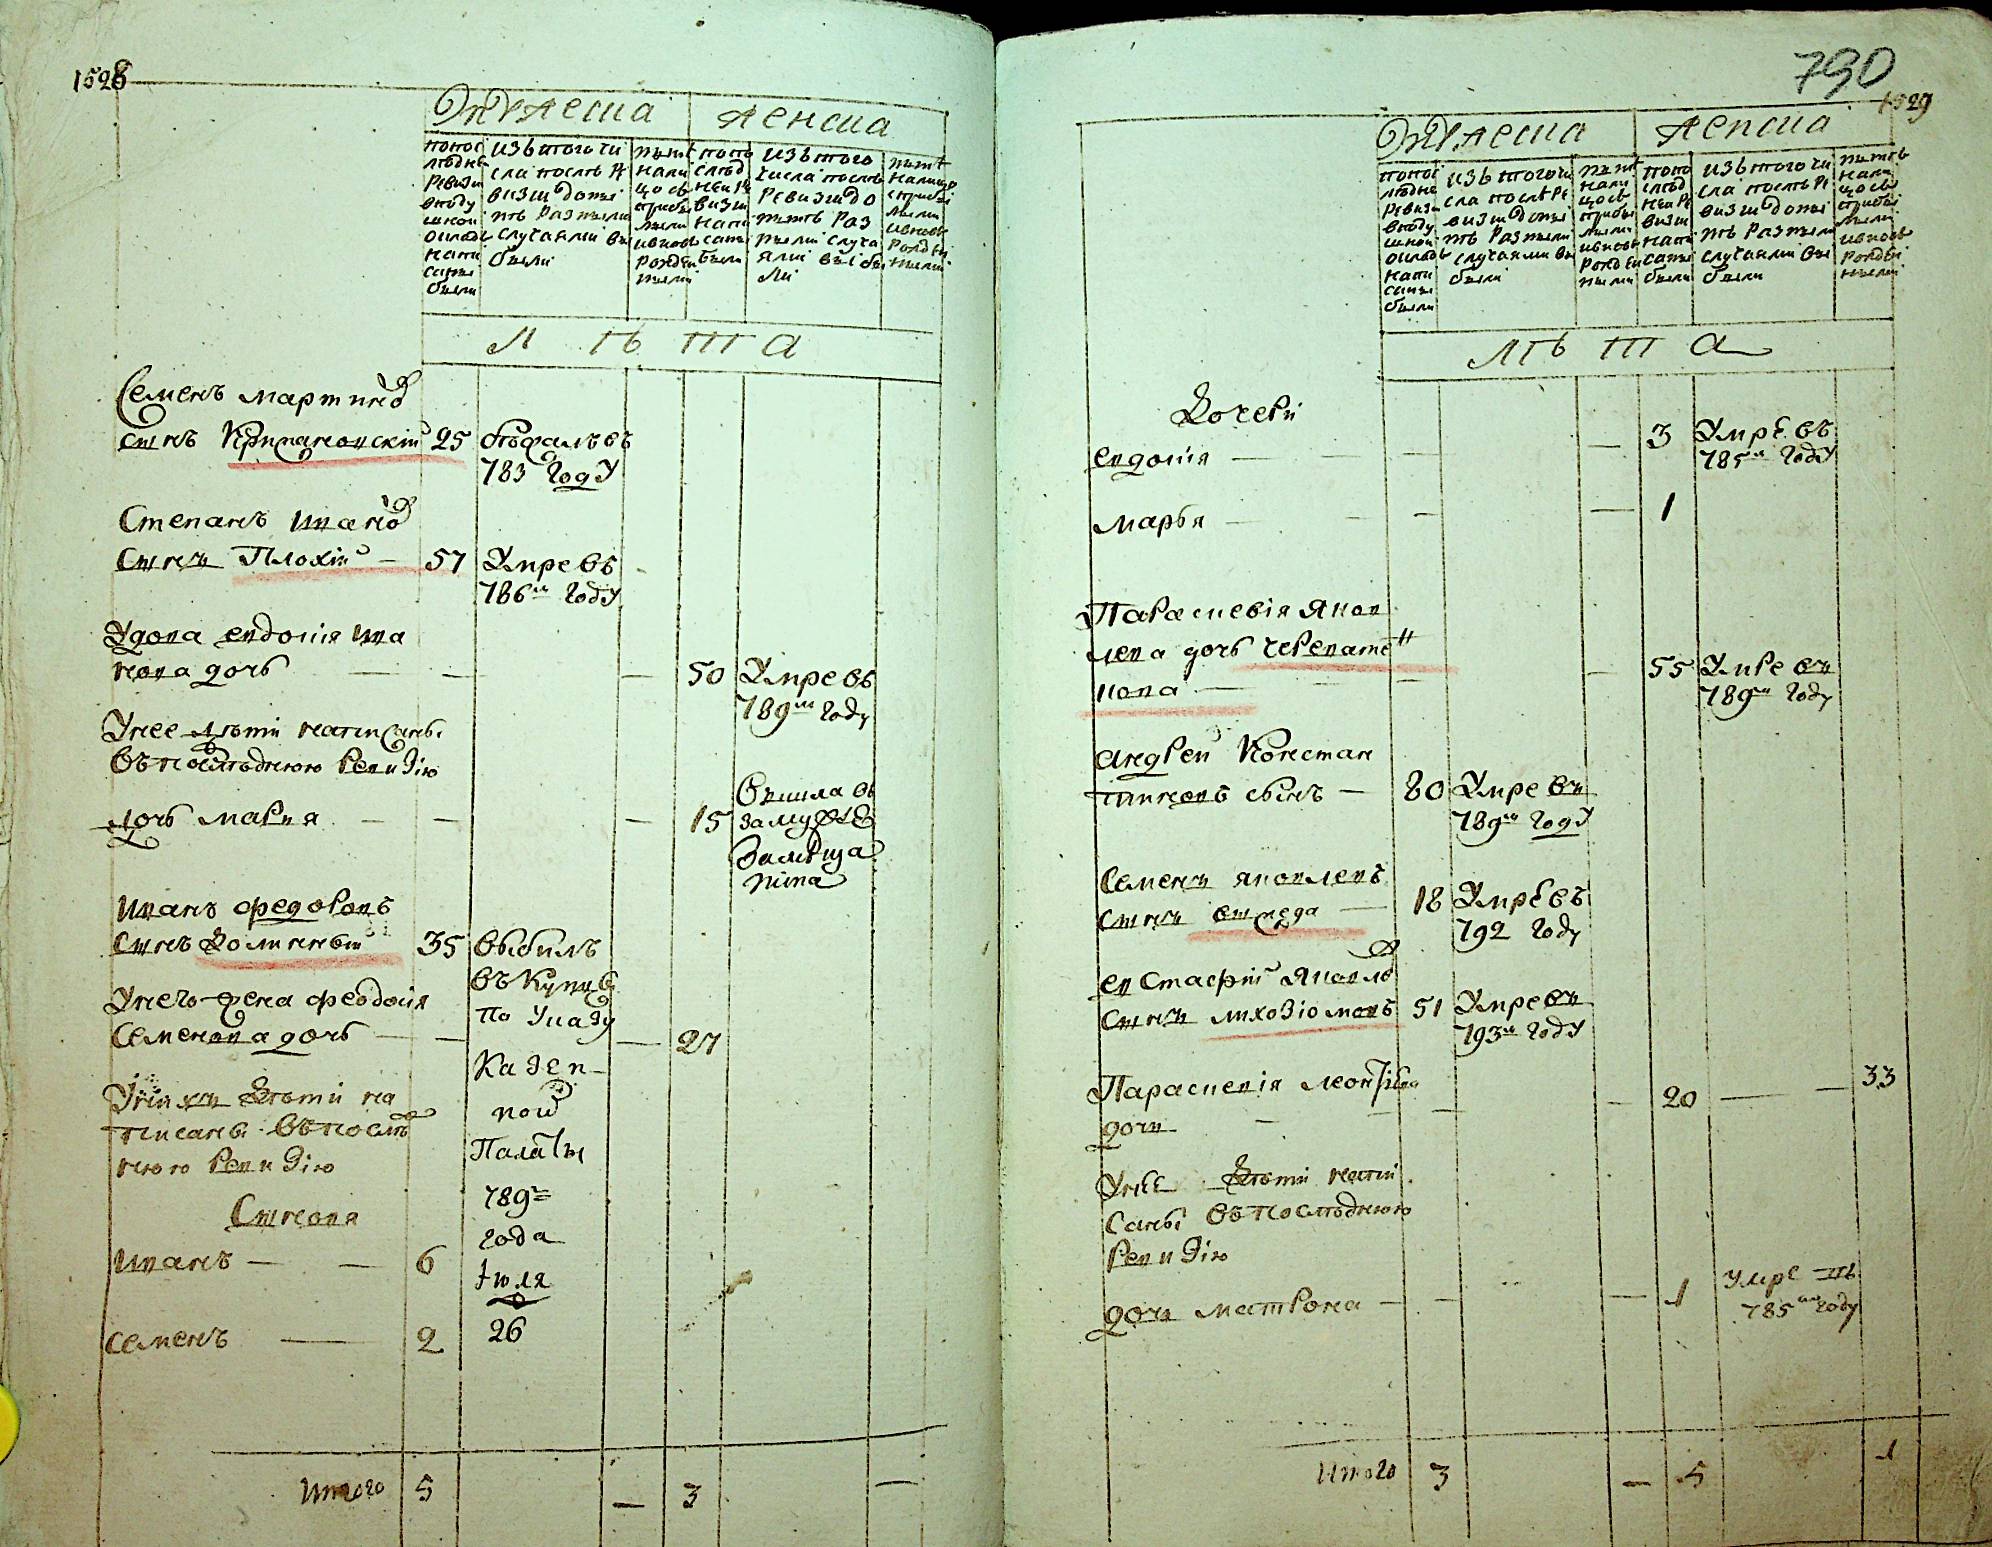 1528
Мужеска
Женска
попос
ледне
ревизи
вподу
шной
окладъ
напи
саны
были
изъ того чи
сла послѣ ре
визіи до ны
нѣ разными
случаями вы
были
нынѣ
нали
цо съ
прибы
лыми
ивновь
рожден
ными
попо
слѣд
ней ре
визіи
напи
саны
были
изъ того
числа послѣ
ревизіи до
нынѣ раз
ными случа
ями выбы
ли
нынѣ
налицо
сприбы
лыми
ивновь
рожден
ными
Лѣта
Семенъ Мартиновъ
сынъ 25 783 году
Степанъ Ивановъ
сынъ Плохій — 57 Умре въ
786м году
Удова Евдокія Ива
нова дочь — — — 50 Умре въ
789м году
Унее дѣти написаны
въ последнюю ревизію
дочь Мария — — — 15 Вышла въ
замужъ
Иванъ Федоровъ
сынъ 35 выбылъ
въ купцы
по указу
казен
ной
палаты
789г
года
июля
26
Унего жена Феодосія
Семенова дочь — — — 27
Унихъ дѣти на
писаны въ послѣд
нюю ревизію
Сыновя
Иванъ — — 6
Семенъ — 2
Итого 5 — 3 —
790
1529
Мужеска
Женска
попос
ледне
ревизи
вподу
шной
окладъ
напи
саны
были
изъ того чи
сла послѣ ре
визіи до ны
нѣ разными
случаями вы
были
нынѣ
нали
цо съ
прибы
лыми
ивновь
рожден
ными
попо
слѣд
ней ре
визіи
напи
саны
были
изъ того чи
сла послѣ ре
визіи до ны
нѣ разными
случаями вы
были
нынѣ
нали
цо съ
прибы
лыми
ивновь
рожден
ными
Лѣта
Дочери
Евдокія — — — — 3 Умре въ
785м году
Марья — — — — 1
Параскевія Яков
лева дочь
— — — 55 Умре въ
789м году
Андрей Констан
тиновъ сынъ — 80 Умре въ
789м году
Семенъ Яковлевъ
сынъ — 18 Умре въ
792 году
Евстафій Яковлевъ
сынъ 51 Умре въ
793м году
Параскевія Леонтіева
дочь — — — — 20 — — 33
Унее дѣти напи
саны въ последнюю
ревизію
дочь Матрона — — — 1 Умре въ
785м году
Итого 3 — 5 1